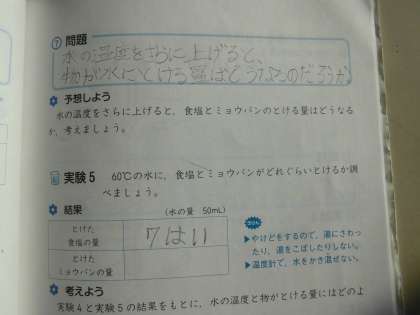 ⑦ 問題
水の温度をさらに上げると、
物が水にとける量はどうなるのだろうか
予想しよう
水の温度をさらに上げると，食塩とミョウバンのとける量はどうなる
か，考えましょう。
実験5 60℃の水に，食塩とミョウバンがどれぐらいとけるか調
べましょう。
結果 (水の量 50mL)
とけた
食塩の量
7はい
とけた
ミョウバンの量
▶やけどをするので，湯にさわっ
たり，湯をこぼしたりしない。
▶温度計で，水をかき混ぜない。
考えよう
実験4と実験5の結果をもとに，水の温度と物がとける量にはどのよ